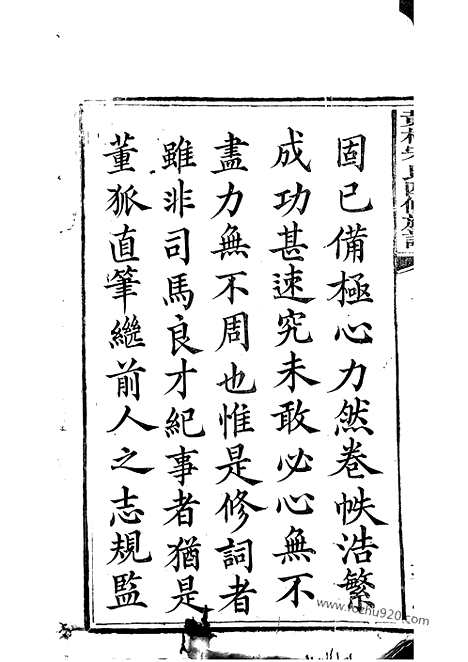 固已備極心力然卷帙浩繁
成功甚速究未敢必心無不
盡力無不周也惟是修詞者
雖非司馬良才紀事者猶是
董狐直筆繼前人之志規監
www.zuchu920.com